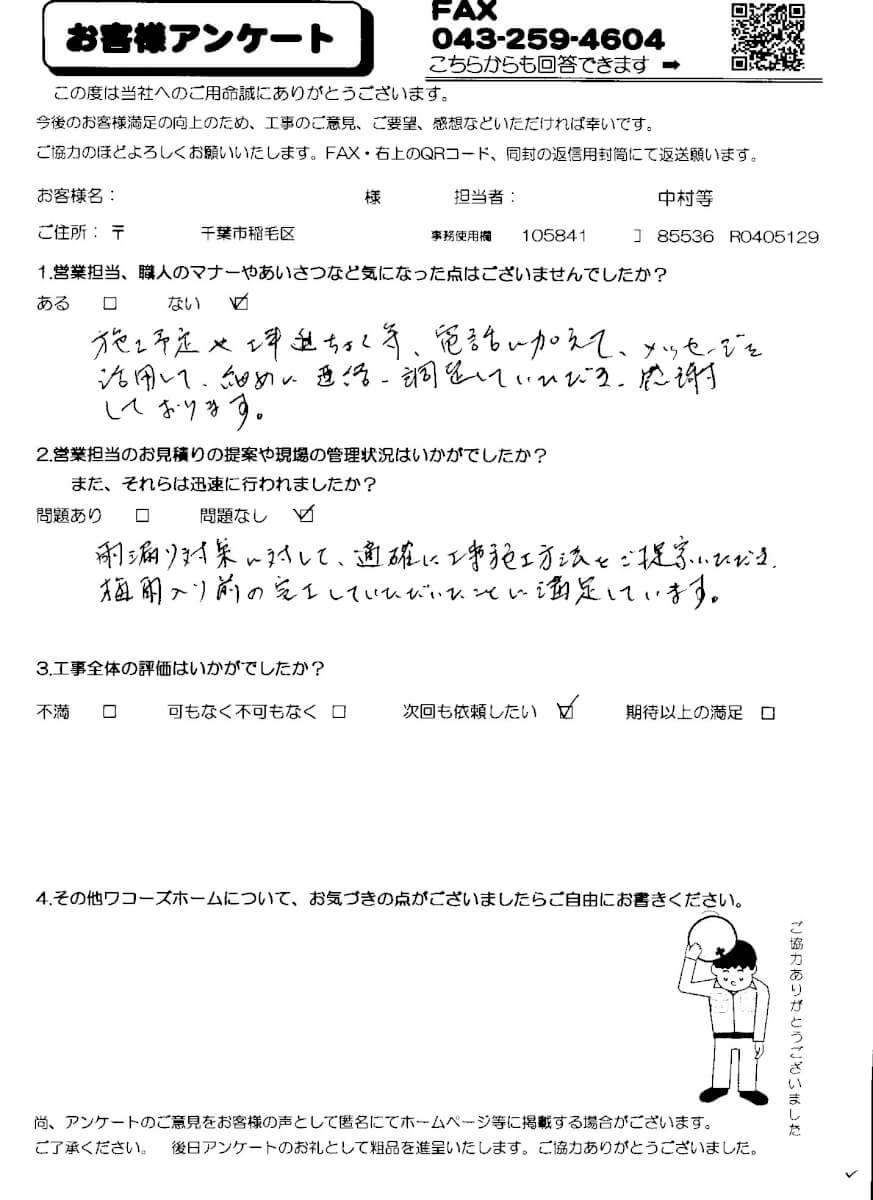 お客様アンケート
FAX
043-259-4604
こちらからも回答できます ➡
この度は当社へのご用命誠にありがとうございます。
今後のお客様満足の向上のため、工事のご意見、ご要望、感想などいただければ幸いです。
ご協力のほどよろしくお願いいたします。FAX・右上のQRコード、同封の返信用封筒にて返送願います。
お客様名： 様 担当者： 中村等
ご住所：〒 千葉市稲毛区 事務使用欄 105841 ] 85536 R0405129
1.営業担当、職人のマナーやあいさつなど気になった点はございませんでしたか？
ある □ ない ☑
施工予定や工事進ちょく等、電話に加えて、メッセージを
活用して、細めに連絡・調整していただき、感謝
しております。
2.営業担当のお見積りの提案や現場の管理状況はいかがでしたか？
また、それらは迅速に行われましたか？
問題あり □ 問題なし ☑
雨漏り対策に対して、適確に工事施工方法をご提案いただき、
梅雨入り前の完工していただいたことに満足しています。
3.工事全体の評価はいかがでしたか？
不満 □ 可もなく不可もなく □ 次回も依頼したい ☑ 期待以上の満足 □
4.その他ワコーズホームについて、お気づきの点がございましたらご自由にお書きください。
ご協力ありがとうございました
尚、アンケートのご意見をお客様の声として匿名にてホームページ等に掲載する場合がございます。
ご了承ください。 後日アンケートのお礼として粗品を進呈いたします。ご協力ありがとうございました。